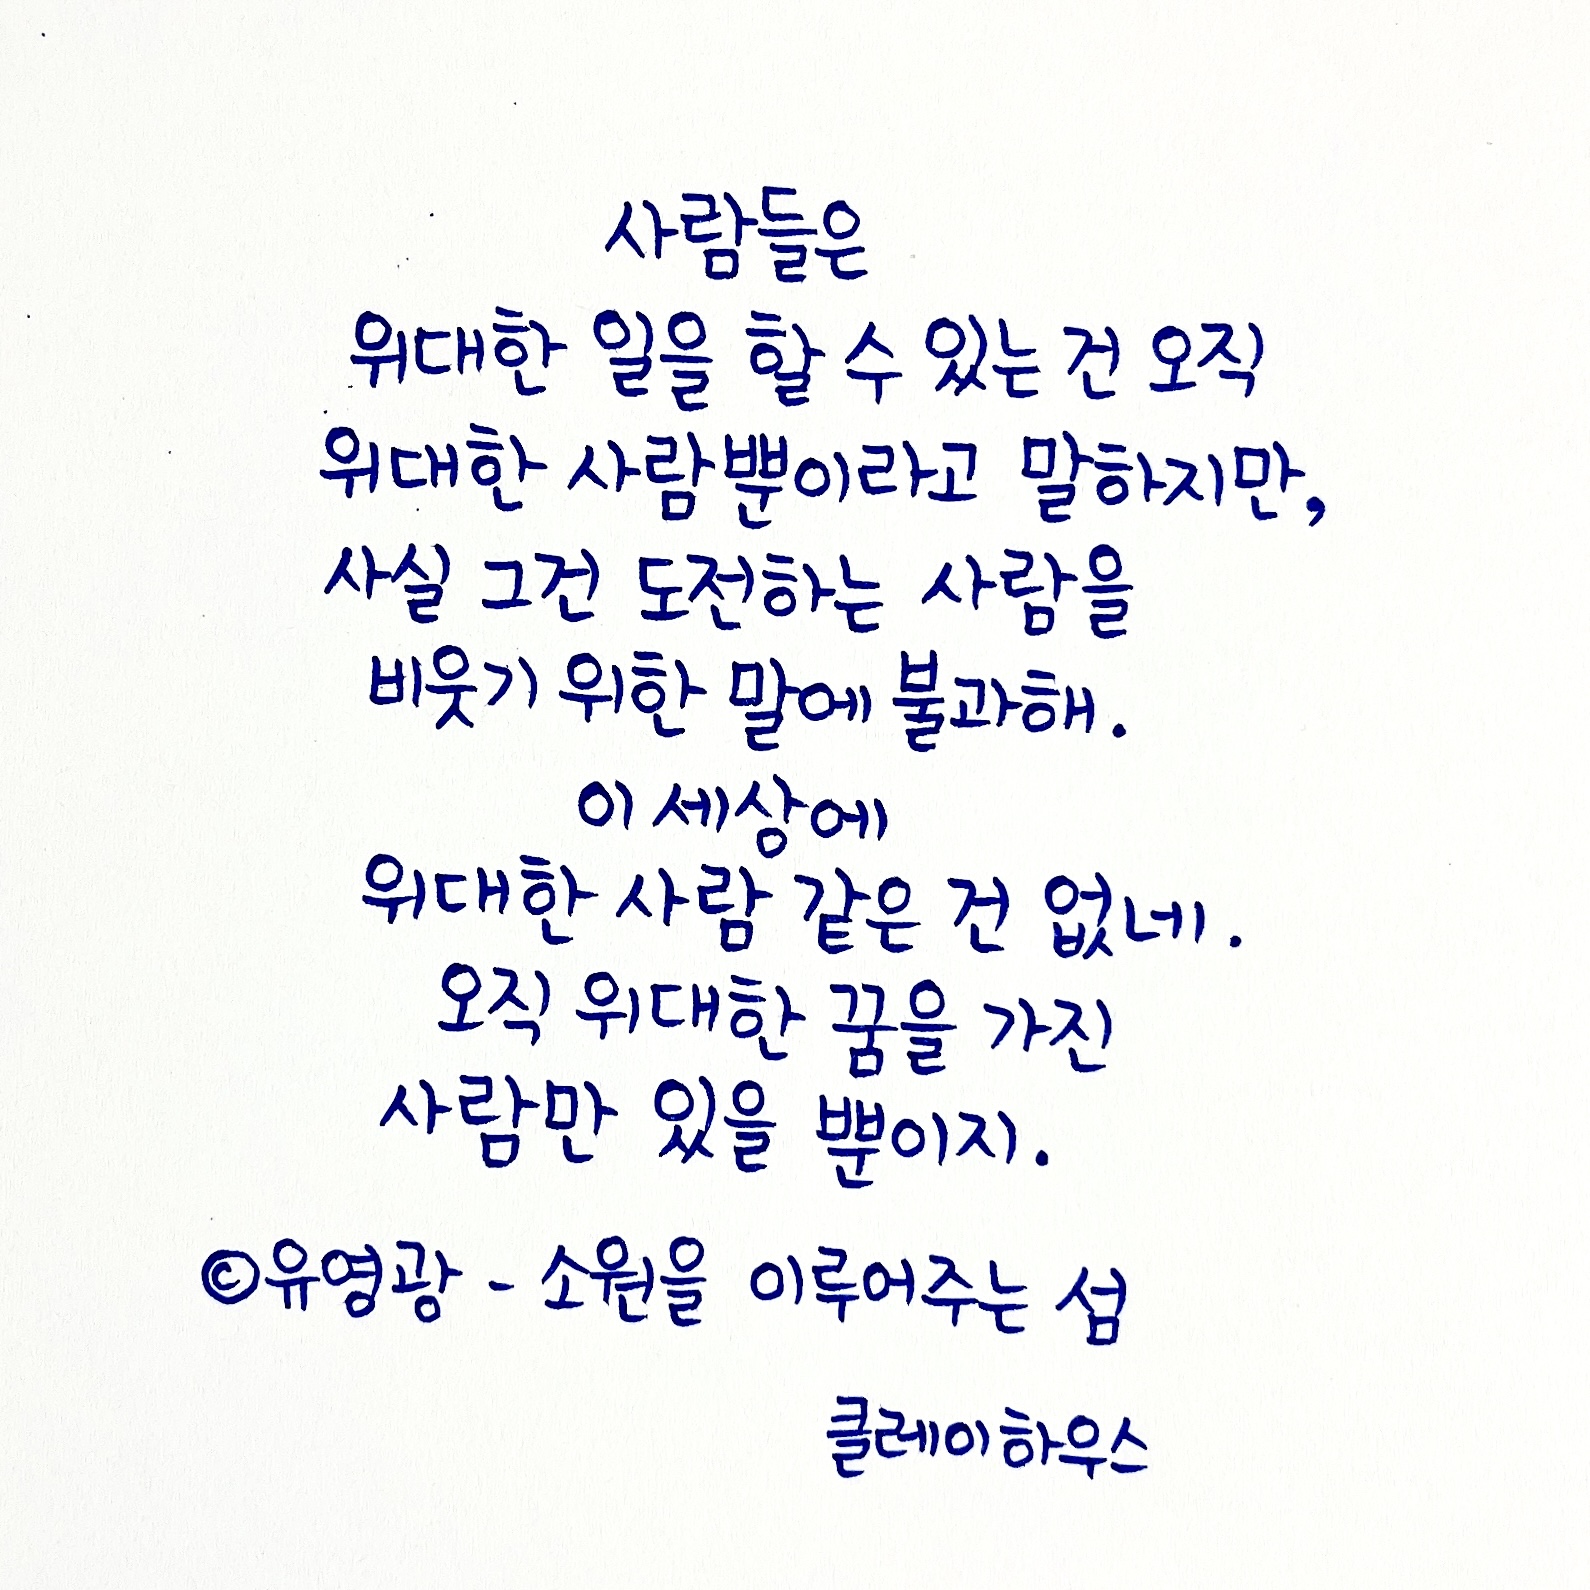 사람들은
위대한 일을 할 수 있는 건 오직
위대한 사람뿐이라고 말하지만,
사실 그건 도전하는 사람을
비웃기 위한 말에 불과해.
이 세상에
위대한 사람 같은 건 없네.
오직 위대한 꿈을 가진
사람만 있을 뿐이지.
©유영광 - 소원을 이루어주는 섬
클레이하우스